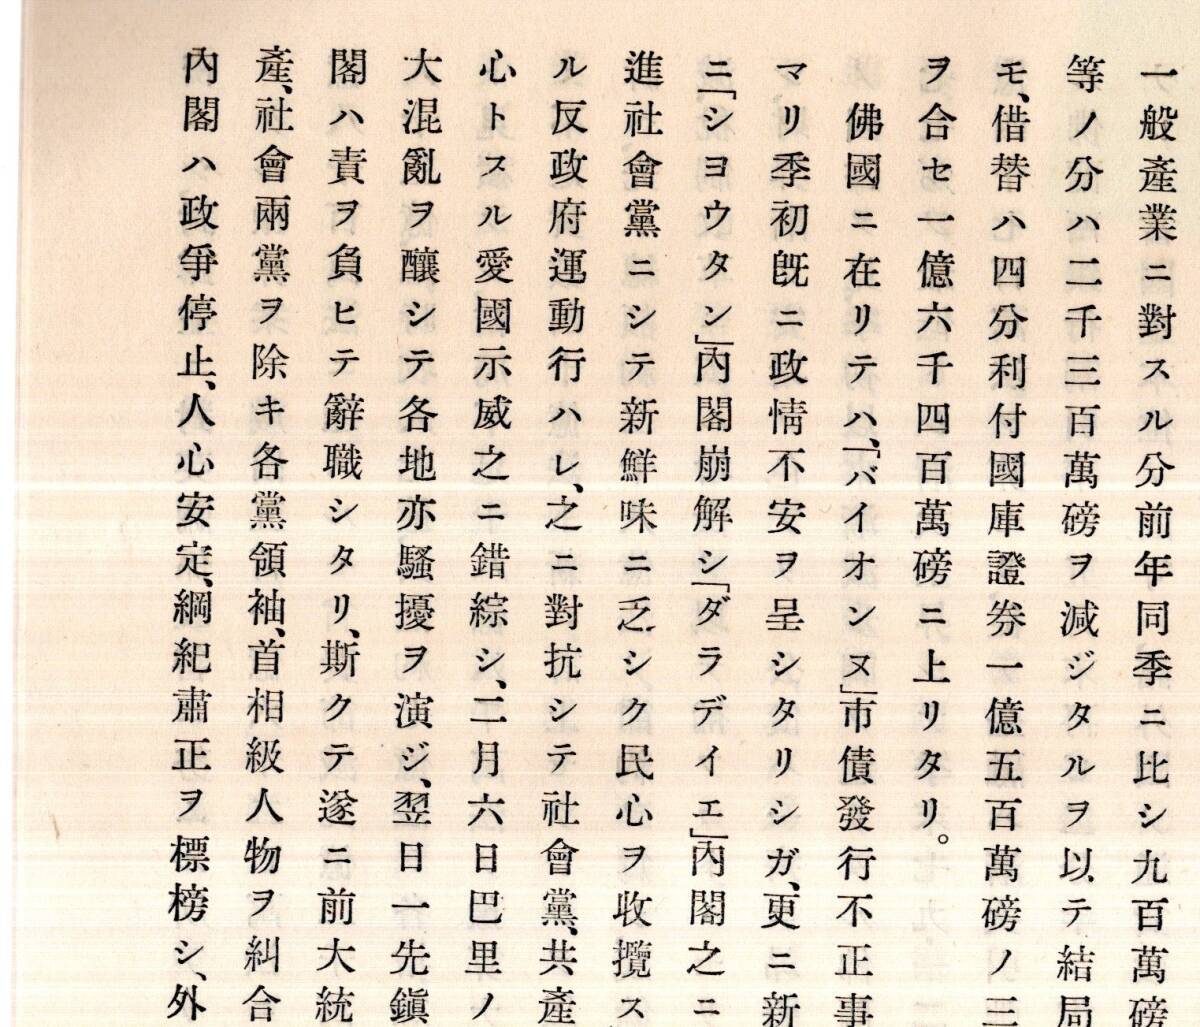 一般產業ニ對スル分前年同季ニ比シ九百萬磅
等ノ分ハ二千三百萬磅ヲ減ジタルヲ以テ結局
モ、借替ハ四分利付國庫證券一億五百萬磅ノ三
ヲ合セ一億六千四百萬磅ニ上リタリ。
佛國ニ在リテハ、「バイオンヌ」市債發行不正事
マリ季初旣ニ政情不安ヲ呈シタリシガ、更ニ新
ニ「シヨウタン」內閣崩解シ「ダラデイエ」內閣之ニ
進社會黨ニシテ新鮮味ニ乏シク民心ヲ收攬ス
ル反政府運動行ハレ、之ニ對抗シテ社會黨、共產
心トスル愛國示威之ニ錯綜シ、二月六日巴里ノ
大混亂ヲ釀シテ各地亦騷擾ヲ演ジ、翌日一先鎭
閣ハ責ヲ負ヒテ辭職シタリ、斯クテ遂ニ前大統
產、社會兩黨ヲ除キ各黨領袖、首相級人物ヲ糾合
內閣ハ政爭停止、人心安定、綱紀肅正ヲ標榜シ、外